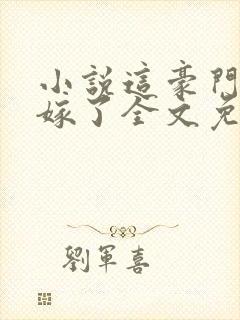 小說這豪門
嫁了全文免
劉軍喜